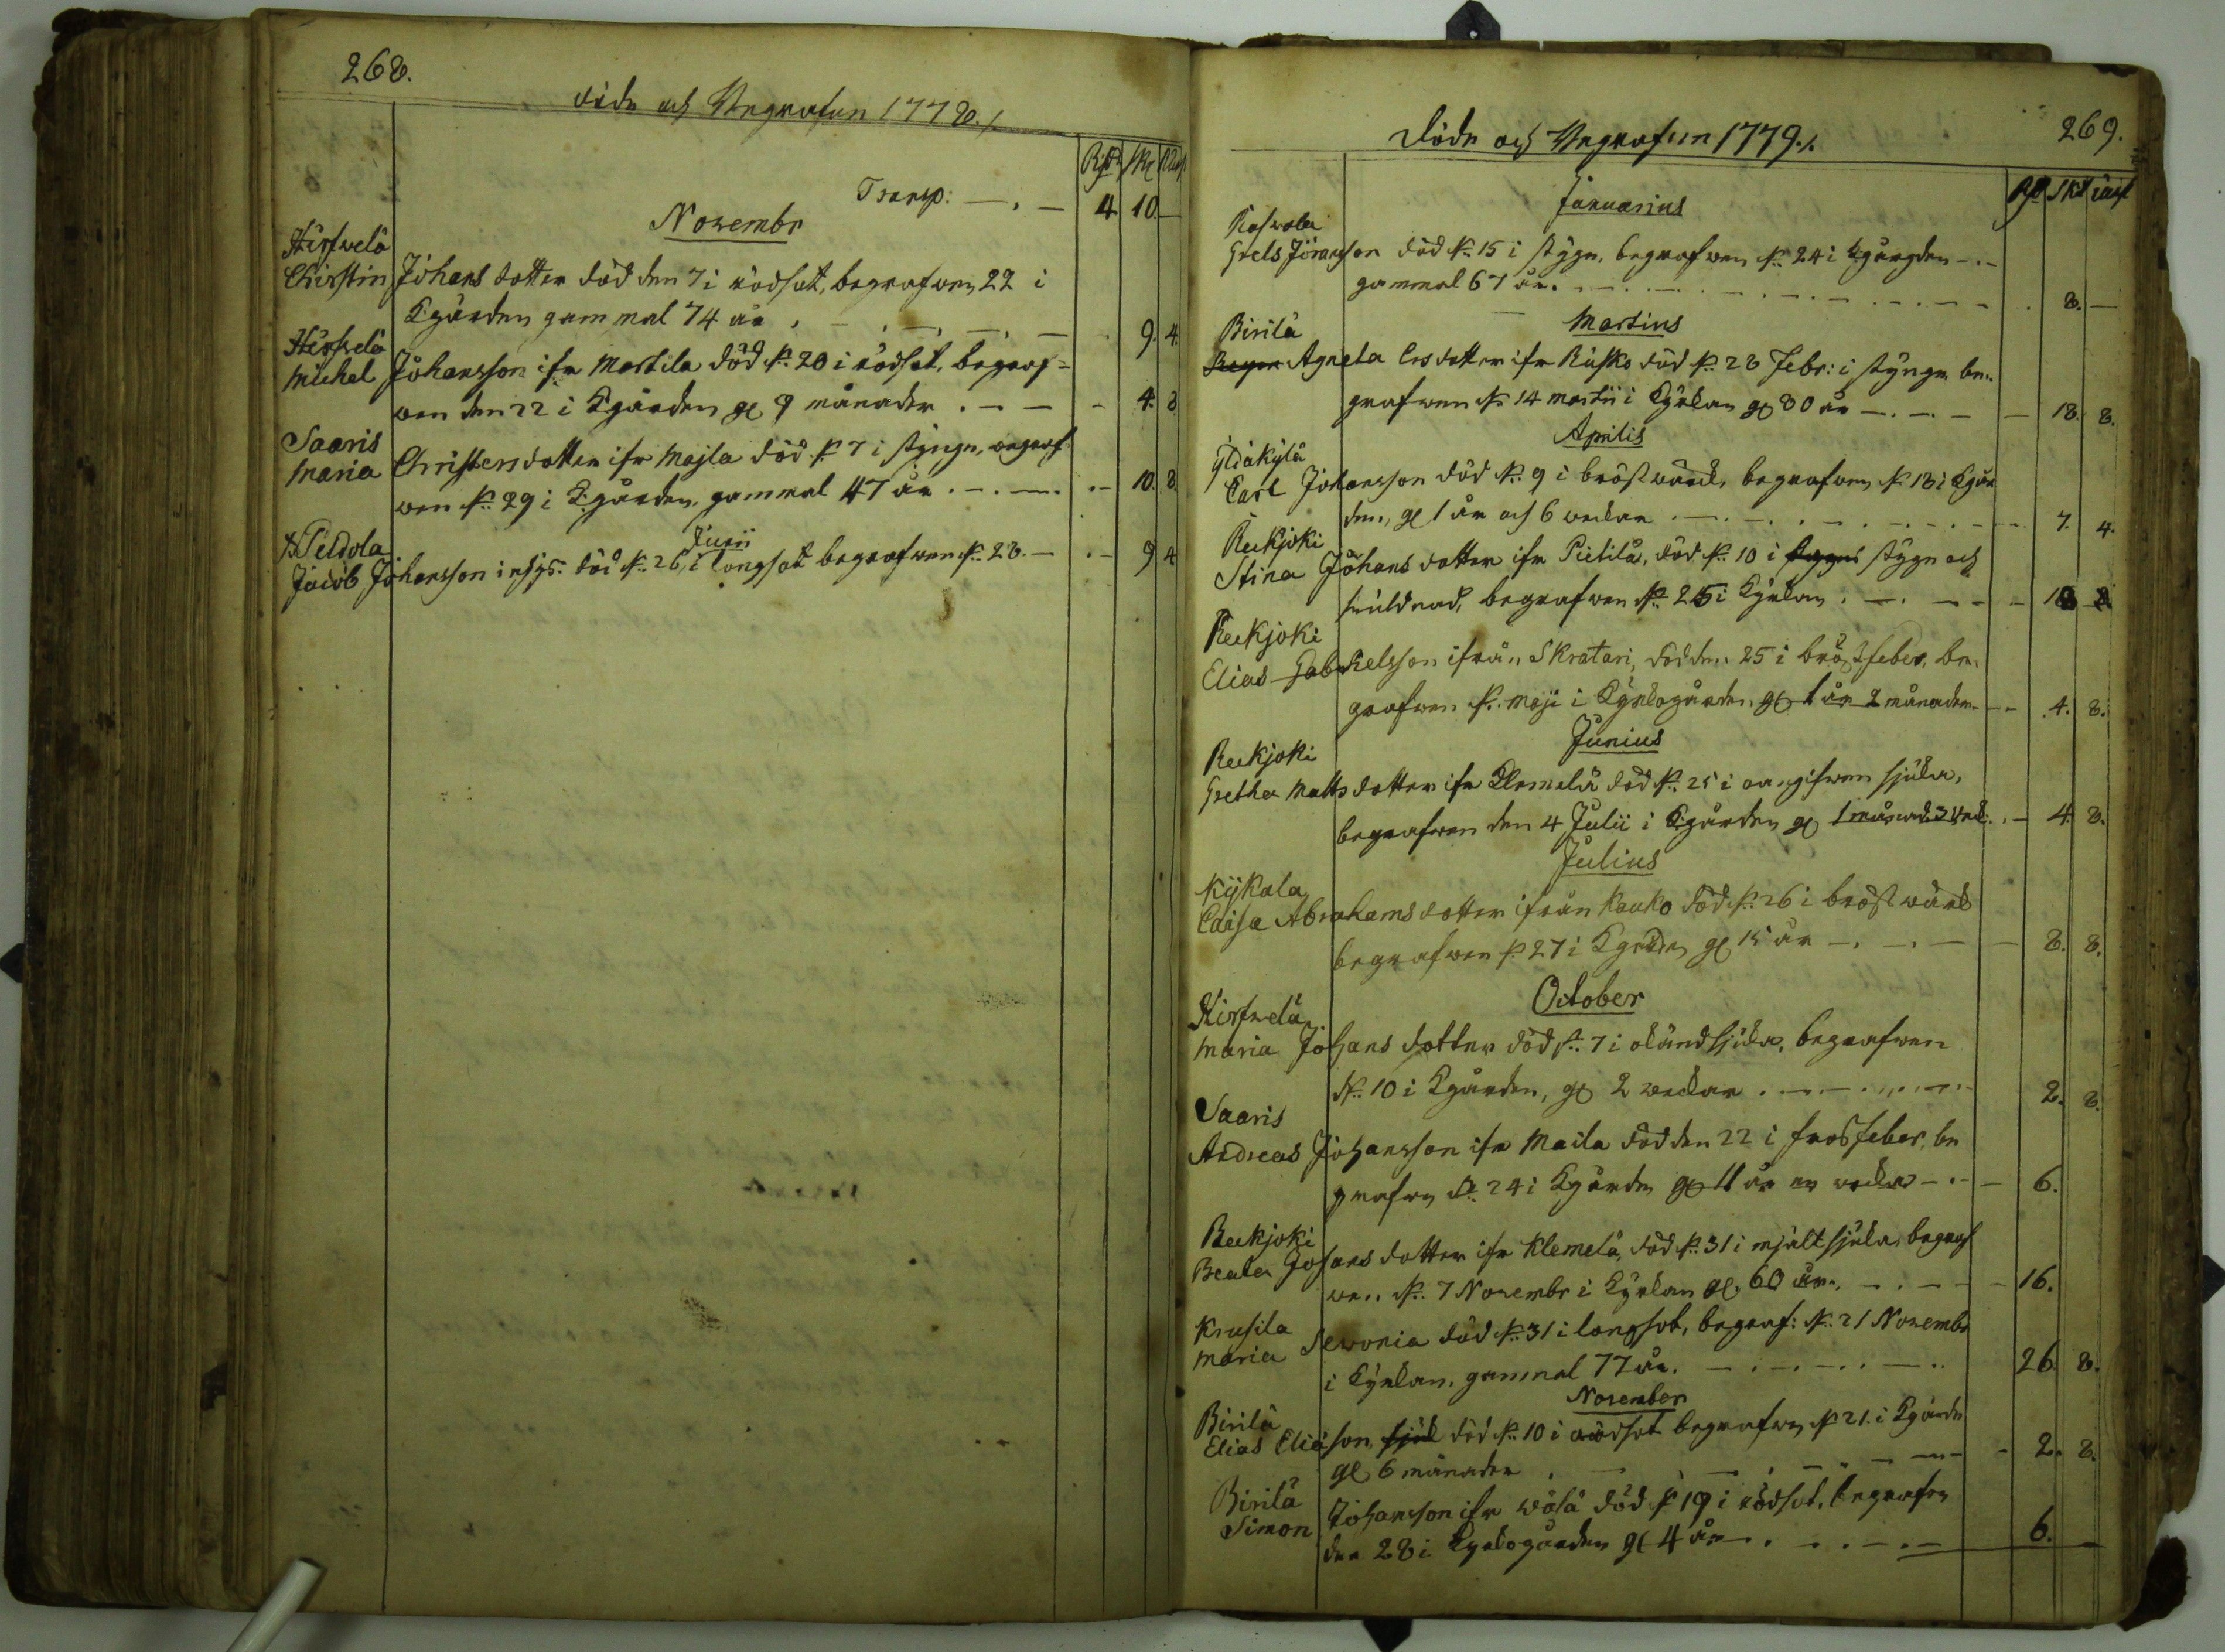 268.
döde och Begrafne 1778./.
Rdr Skl Rst
Transp: 4 10
Novembr
Hirfvelä
Christin Johans dotter död den 7 i rödsot, begrafwen 22 i
Kgården gammal 74 år 9. 4.
Hirfvelä
Michel Johansson ifr Martila död d: 20 i rödsot, begraf=
wen den 22 i Kgården gl 9 månader 4. 8.
Saaris
Maria Christersdotter ifr Majla död d: 7 i styngn, begraf
wen d: 29 i Kgården, gammal 47 år 10. 8.
Junii
Peldola
Jacob Johansson död d: 26 i longsot begrafwen d: 28. 9 4
269.
Döde och Begrafne 1779./.
Januarius
Grels Jöransson död d: 15 i stygn, begrafwen d: 24 i Kgården
gammal 67 år. 8.
Martius
Birilä
Agneta Ersdotter ifr Rusko död d: 28 Febr: i styngn be-
grafwen d: 14 martii i Kyrkan gl 80 år 18. 8.
Aprilis
Yläkylä
Carl Johansson död d: 9 i bröstwärck, begrafwen d: 18 i Kgår
den, gl 1 år och 6 weckor 7. 4.
Reekjoki
Stina Johans dotter ifr Pietilä, död d: 10 i stygn och
swulnad, begrafwen d: 25 i Kyrkan
Reekjoki
Elias Gabrielsson ifrån Skratari, död den 25 i bröstfeber, be-
grafwen d: Maji i Kyrkogården, gl 1 år 2 månader 4. 8.
Junius
Reekjoki
Gretha Matts dotter ifr Klemelä död d: 25 i oangifwen sjuka,
begrafwen den 4 Julii i Kgården gl 1 månad 3 wek: 4. 8.
Julius
Kykala
Caisa Abrahamsdotter ifrån Kauko död d: 26 i bröstwärck
begrafwen d: 27 i Kgården gl 15 år 8. 8.
October
Hirfvelä
Maria Johans dotter död d: 7 i okänd sjuka, begrafwen
d: 10 i Kgården, gl 2 weckor 2. 8.
Saaris
Andreas Johansson ifr Maila död den 22 i frosfeber, be
grafwen d: 24 i Kgården gl 11 år en wecka 6.
Reekjoki
Beata Johans dotter ifr Klemelä, död d: 31 i mjältsjuka, begraf
wen d: 7 Novembr i Kyrkan gl. 60 år. 16.
Krusila
Maria Sewonia död d: 31 i longsot, begraf: d: 21 Novembr
i Kyrkan, gammal 77 år. 26. 8.
November
Birilä
Elias Eliasson död d: 10 i rödsot begrafwen d: 21 i Kgården
gl 6 månader 2. 8.
Birilä
Simon Johansson ifr död d: 19 i rödsot, begrafwen
den 28 i Kyrkogården gl 4 år 6.